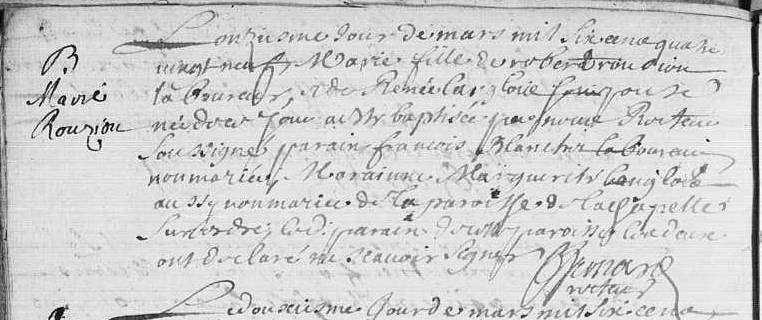 B
Marie
Rouzion
Lonziesme Jour de mars mil six cens quatre
vingt neuf Marie fille de robert rouzion
laboureur, et de Renée
née de ce Jour a esté baptisée par nous Recteur
sousigné parain francois Blanchet laboureur
non marié, Maraine Marguerite
aussy non mariée de la paroisse de la Chapelle
Sur erdre, led. parain de cette paroisse lesdeux
ont declaré ne scavoir signer
Recteur
Le douziesme Jour de mars mil six cens